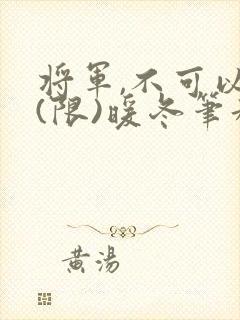 將軍,不可以
(限)暖冬筆
黃湯